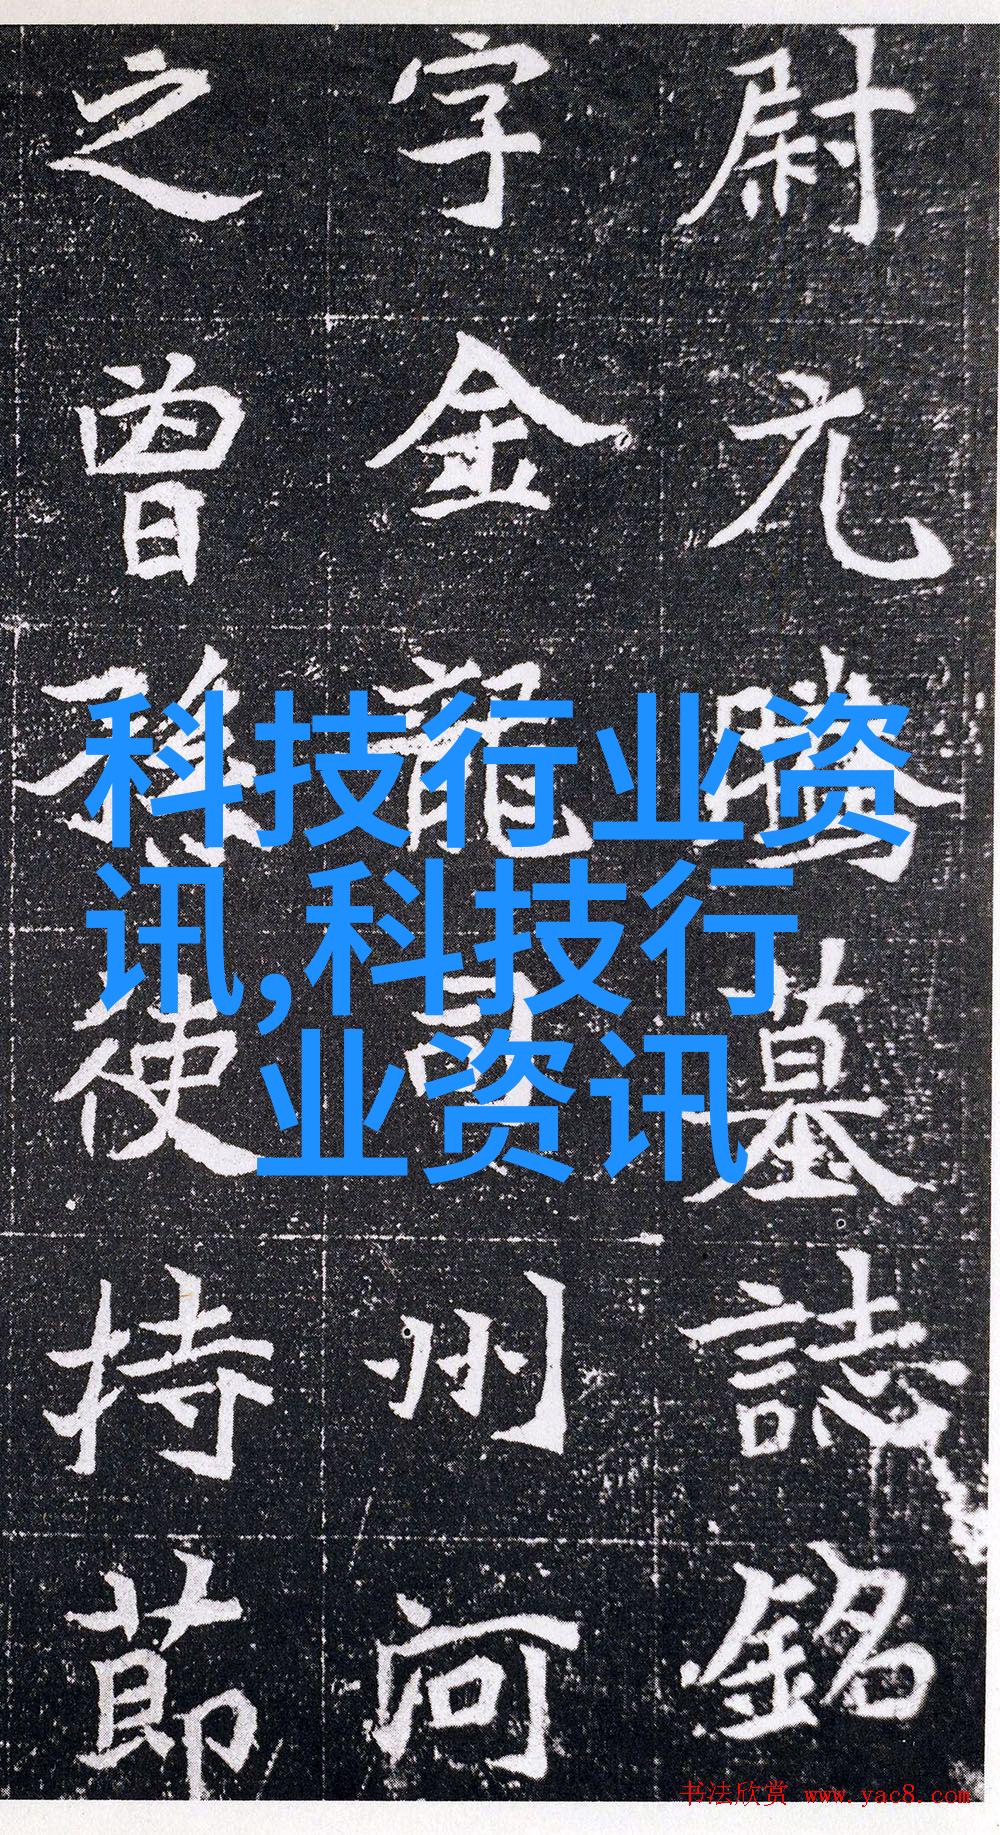 尉元騰墓誌銘
字金龍司州河
之曾孫使持節
科技行业资
讯,科技行
业资讯
书法欣赏 www.yac8.com